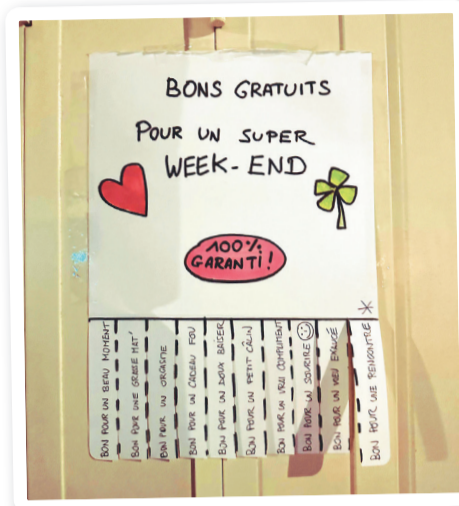 BONS GRATUITS
POUR UN SUPER
WEEK-END
100%
GARANTI!
BON POUR UN BEAU MOMENT
BON POUR UNE GRASSE MAT'
BON POUR UN ORGASME
BON POUR UN CADEAU FOU
BON POUR UN DOUX BAISER
BON POUR UN PETIT CÂLIN
BON POUR UN VRAI COMPLIMENT
BON POUR UN SOURIRE
BON POUR UN VŒU EXAUCÉ
BON POUR UNE RENCONTRE